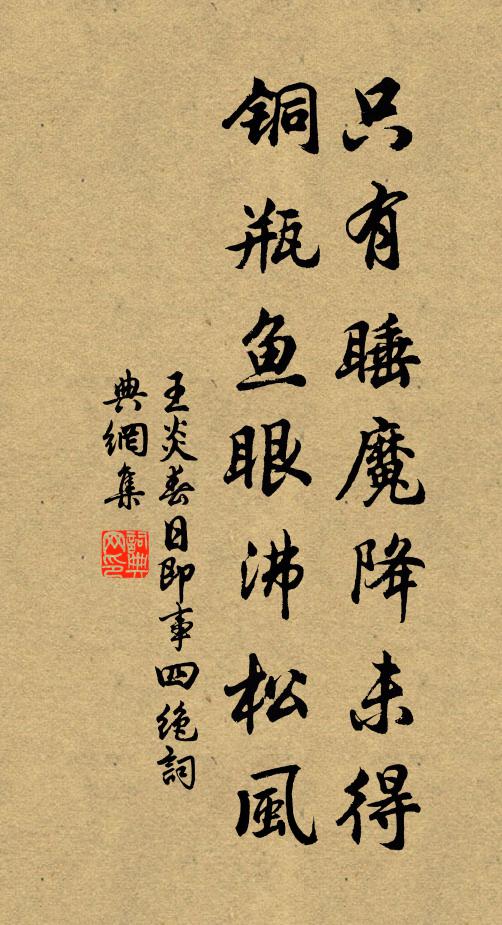 只有睡魔降未得
铜瓶鱼眼沸松風
王炎春日即事四绝詞
典網集
詞典网印